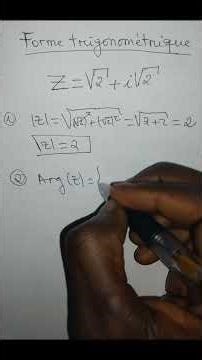 Forme trigonométrique
Z = √2 + i√2
① |Z| = √(√2)² + (√2)² = √2+2 = 2
|Z| = 2
② Arg(Z) = {